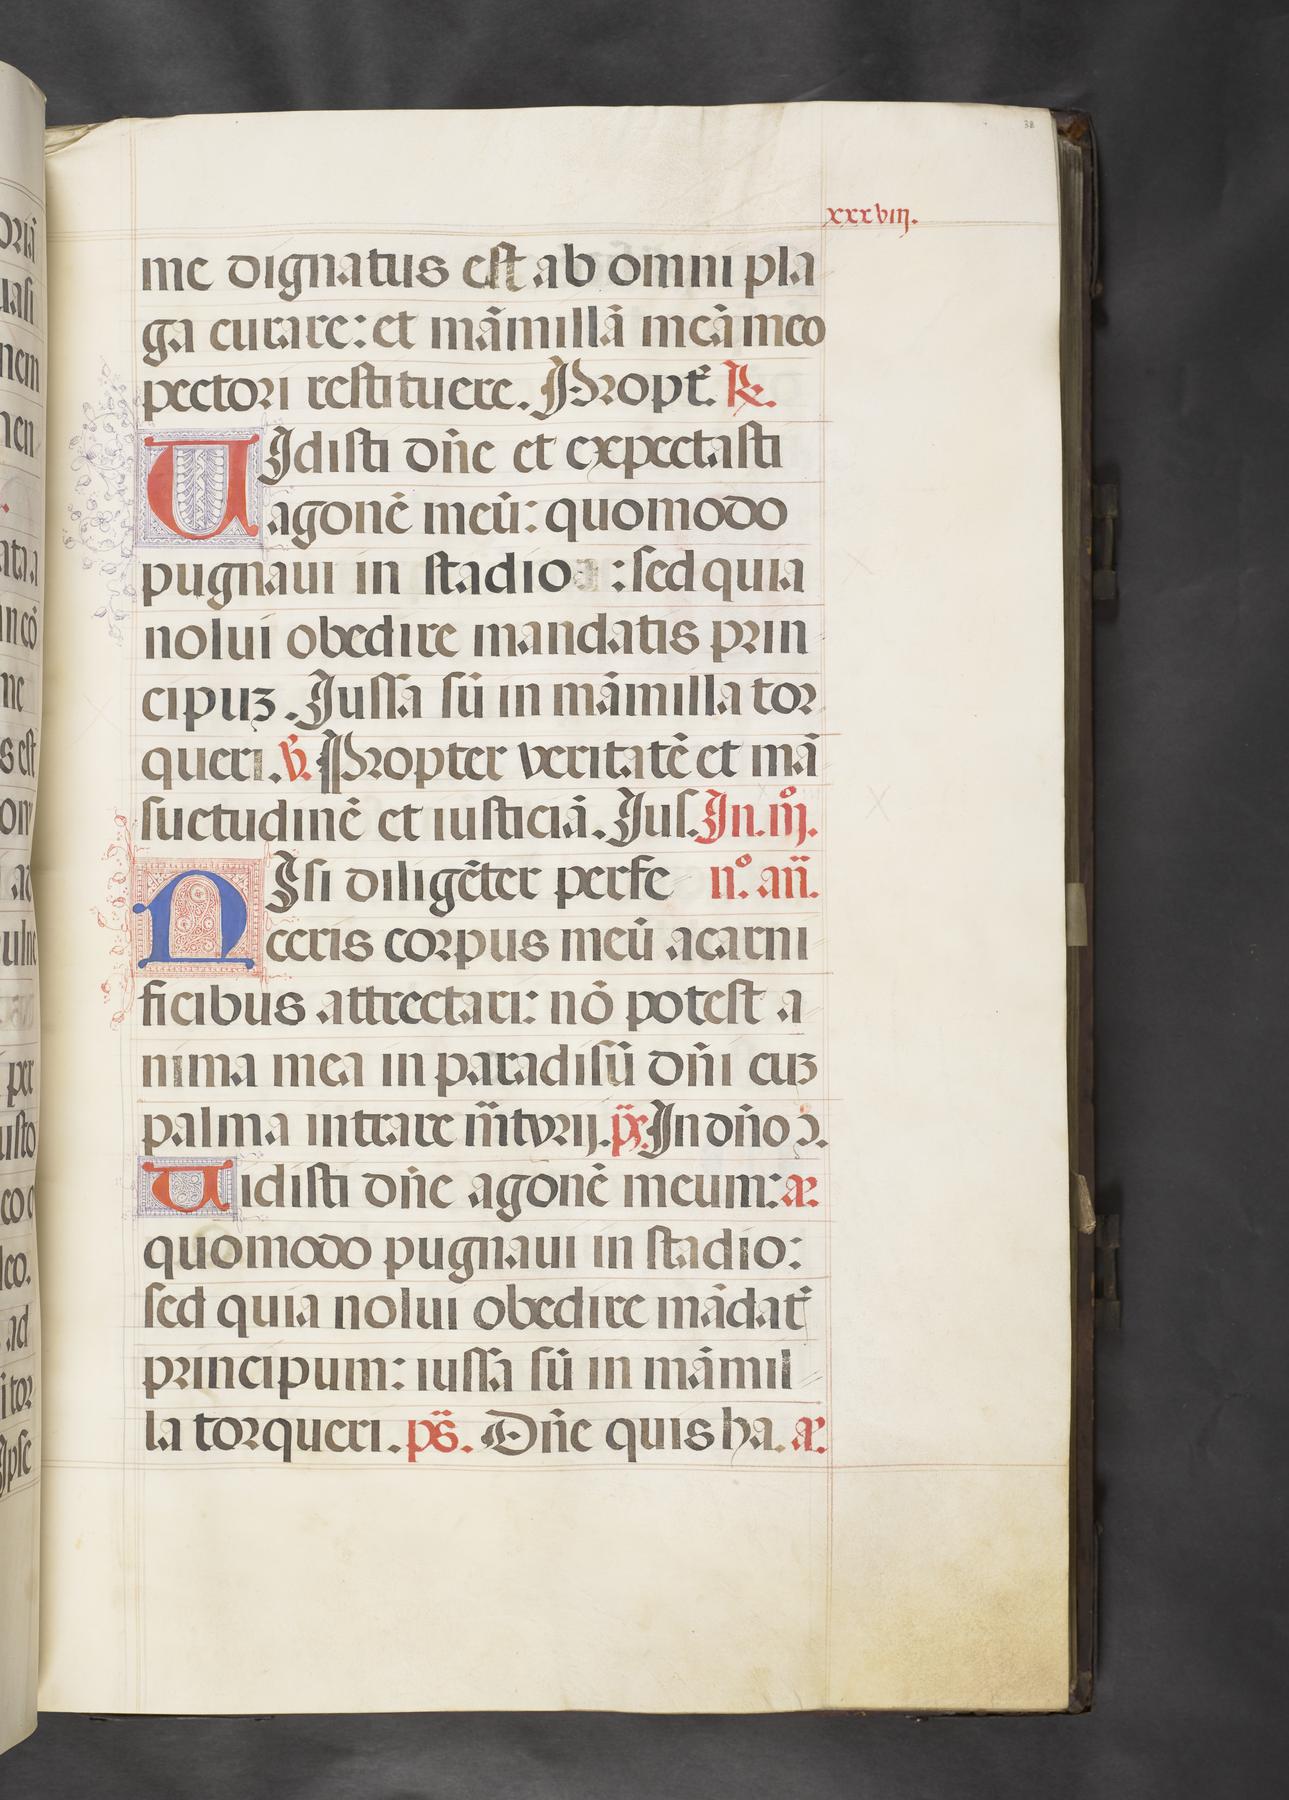 38
xxxviij.
me dignatus est ab omni pla
ga curare: et mãmillã meã meo
pectori restituere. Propt̃. ℟.
UIdisti dñe et expectasti
agonẽ meũ: quomodo
pugnaui in stadio : sed quia
nolui obedire mandatis prin
cipuꝫ. Jussa sũ in mãmilla tor
queri. ℣. Propter veritatẽ et mã
suetudinẽ et iusticiã. Jus. In. iijº.
NIsi diligẽter perfe nº. añ.
ceris corpus meũ a carni
ficibus attrectari: nõ potest a
nima mea in paradisũ dñi cuꝫ
palma intrare m̃tyrij. p̃s. In dño ↄ.
Uidisti dñe agonẽ meum: añ.
quomodo pugnaui in stadio:
sed quia nolui obedire mãdat̃
principum: iussa sũ in mãmil
la torqueri. p̃s. Dñe quis ha. añ.